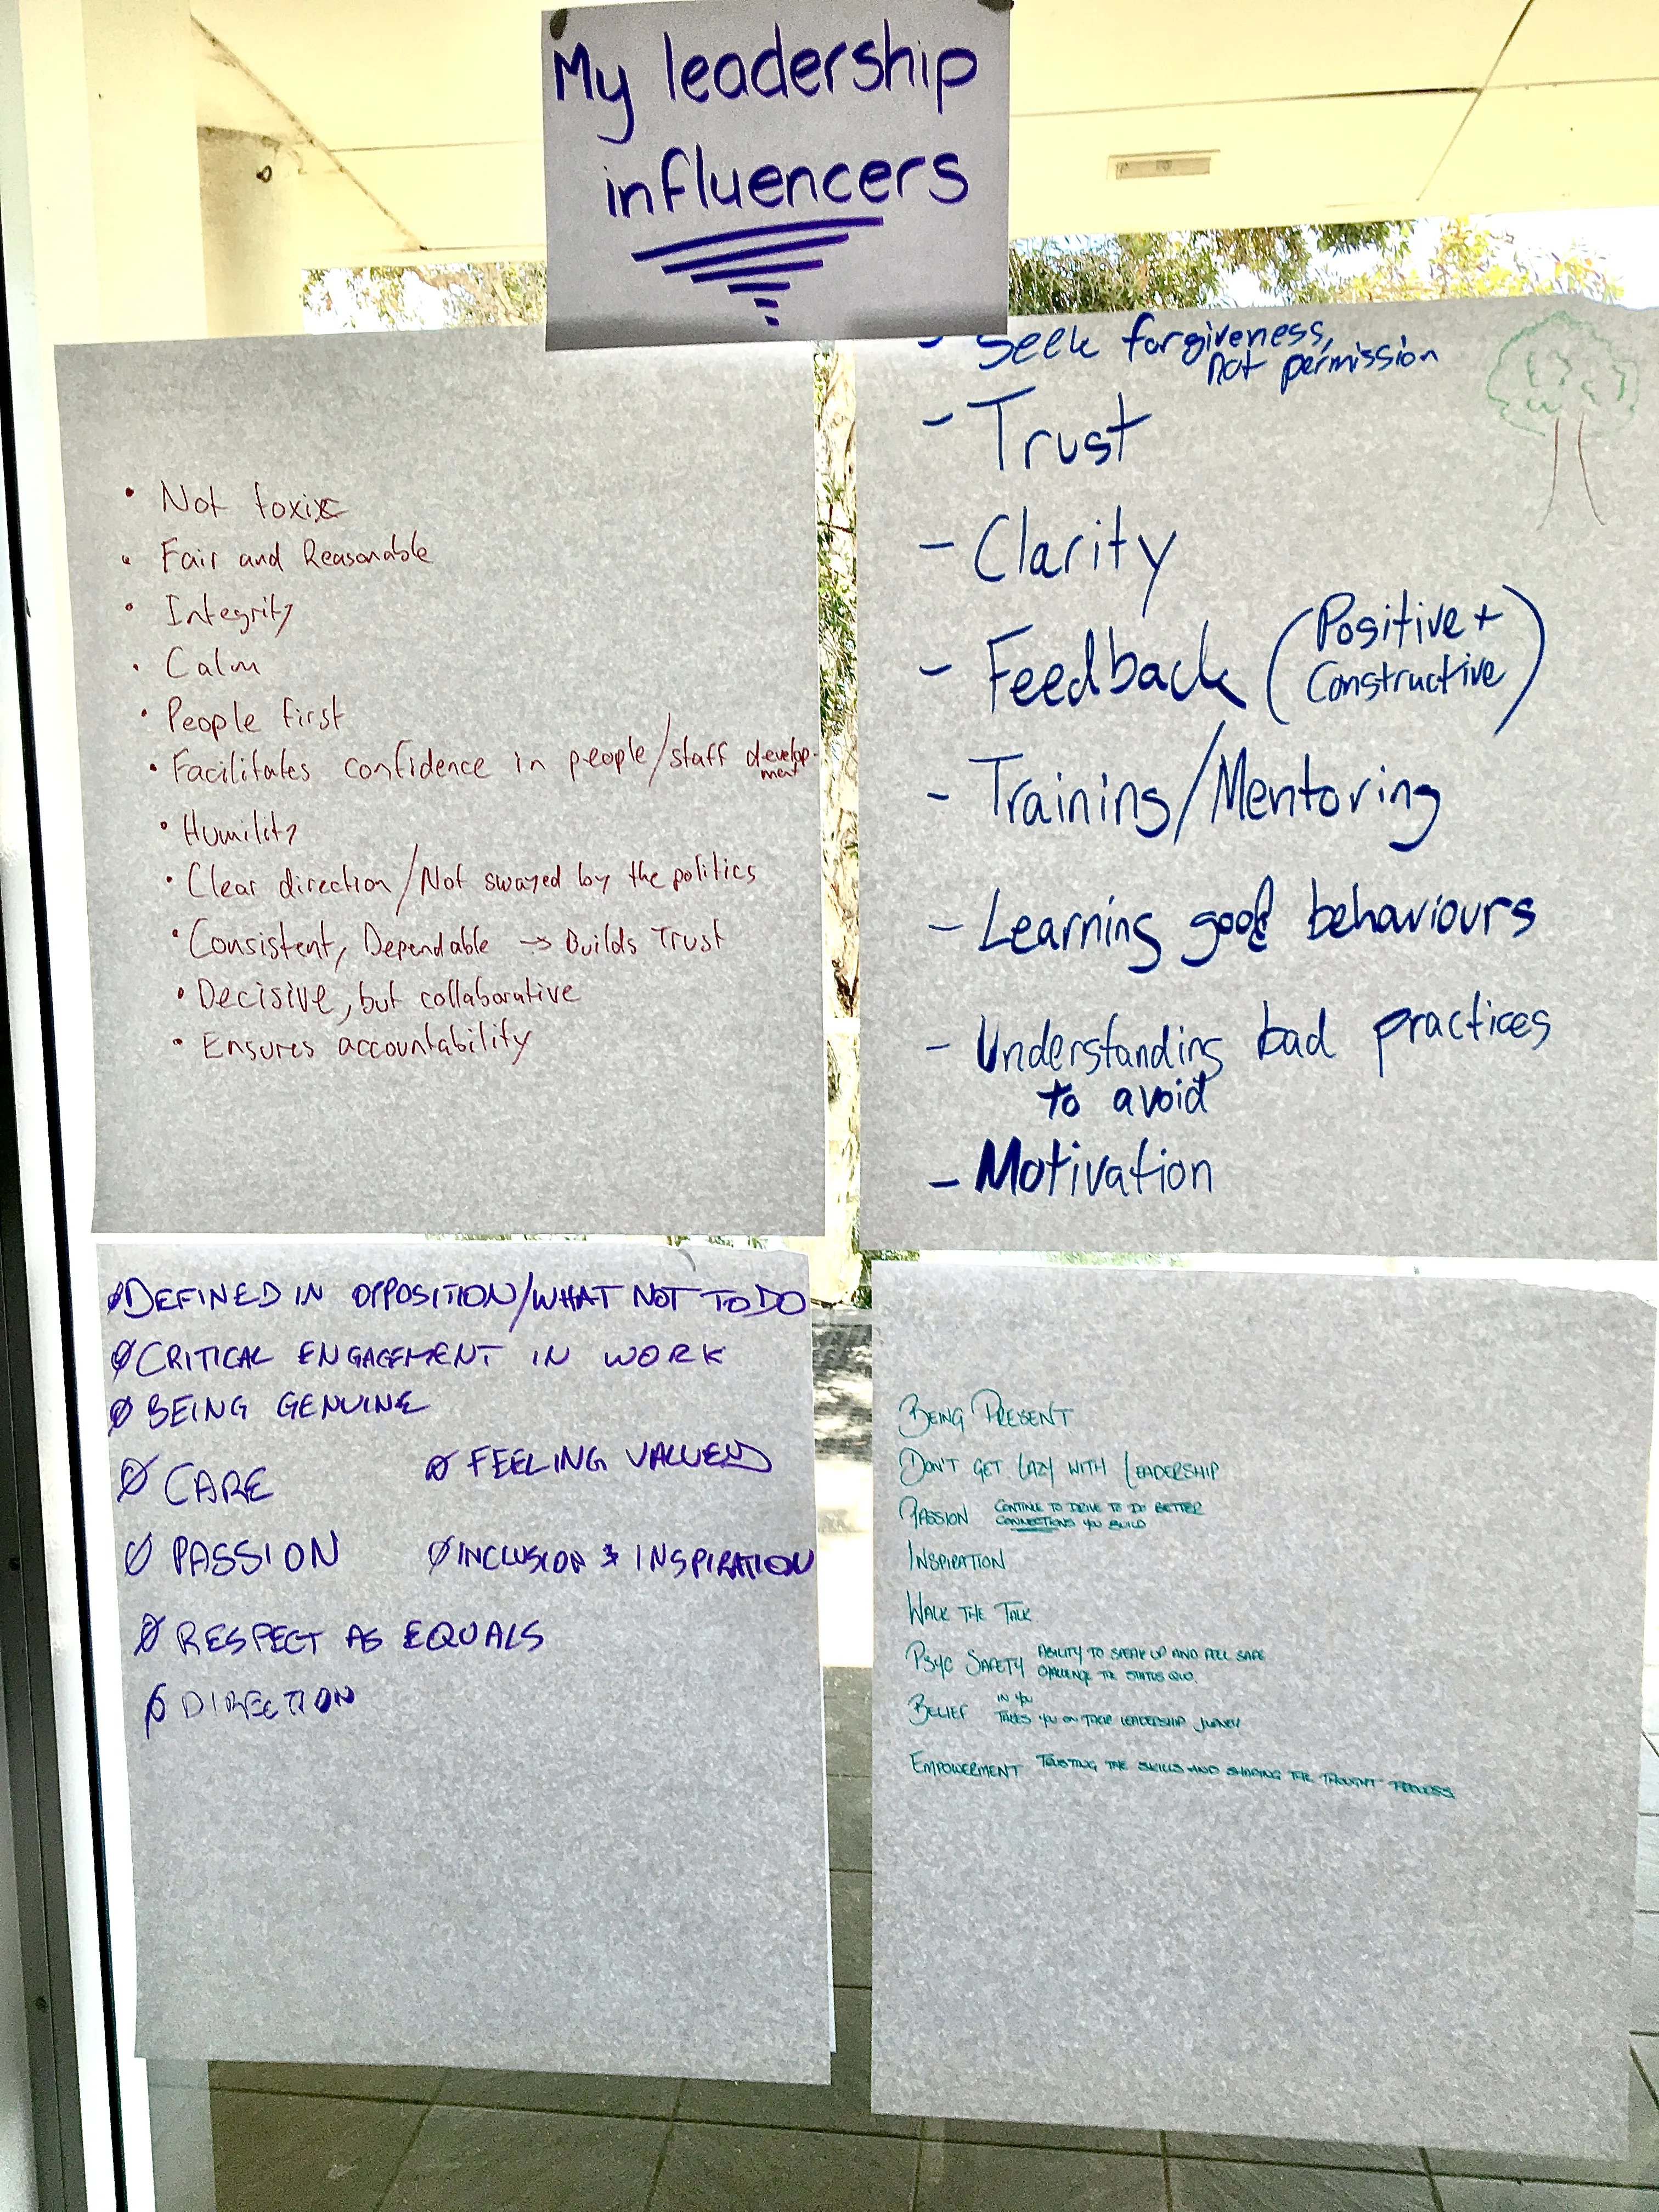 My leadership
influencers
• Not toxic
• Fair and Reasonable
• Integrity
• Calm
• People first
• Facilitates confidence in people/staff develop-
ment
• Humility
• Clear direction/Not swayed by the politics
• Consistent, Dependable → Builds Trust
• Decisive, but collaborative
• Ensures accountability
- Seek forgiveness,
not permission
- Trust
- Clarity
- Feedback (Positive +
Constructive)
- Training/Mentoring
- Learning good behaviours
- Understanding bad practices
to avoid
- Motivation
DEFINED IN OPPOSITION/WHAT NOT TO DO
CRITICAL ENGAGEMENT IN WORK
BEING GENUINE
CARE
FEELING VALUED
PASSION
INCLUSION & INSPIRATION
RESPECT AS EQUALS
DIRECTION
BEING PRESENT
DON'T GET LAZY WITH LEADERSHIP
PASSION CONTINUE TO DRIVE TO DO BETTER
CONNECTIONS YOU BUILD
INSPIRATION
WALK THE TALK
PSYC SAFETY ABILITY TO SPEAK UP AND FEEL SAFE
CHALLENGE THE STATUS QUO.
BELIEF IN YOU
TAKES YOU ON THEIR LEADERSHIP JOURNEY
EMPOWERMENT TRUSTING THE SKILLS AND SHARING THE THOUGHT PROCESS